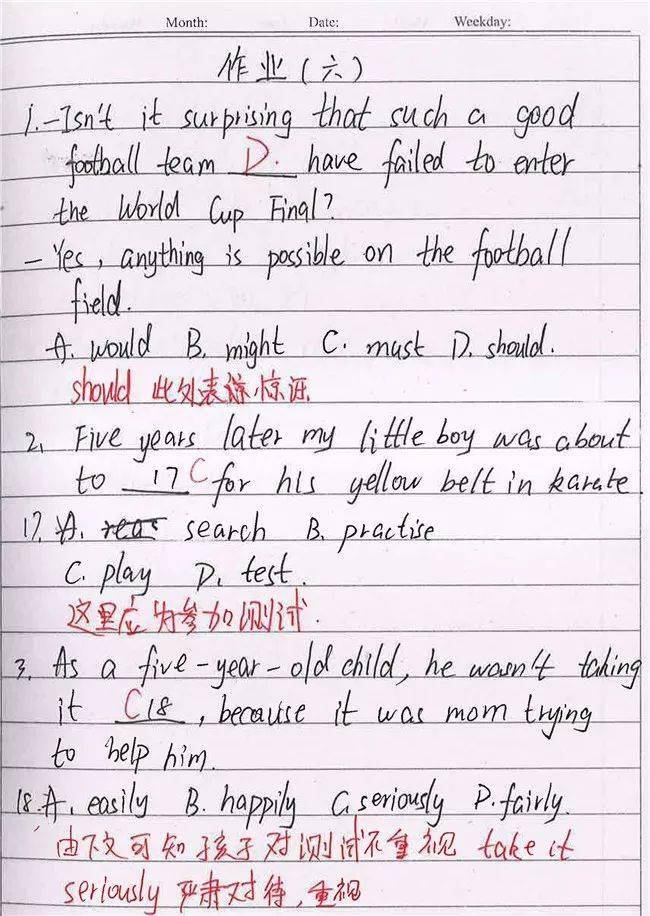 Month: Date: Weekday:
作业(六)
1. -Isn't it surprising that such a good
football team D. have failed to enter
the World Cup Final?
- Yes, anything is possible on the football
field.
A. would B. might C. must D. should.
should 此处表惊讶
2. Five years later my little boy was about
to 17 C for his yellow belt in karate
17. A. search B. practise
C. play D. test.
这里应为参加测试.
3. As a five-year-old child, he wasn't taking
it C 18, because it was mom trying
to help him.
18. A. easily B. happily C. seriously D. fairly.
由下文可知孩子对测试不重视 take it
seriously 严肃对待,重视